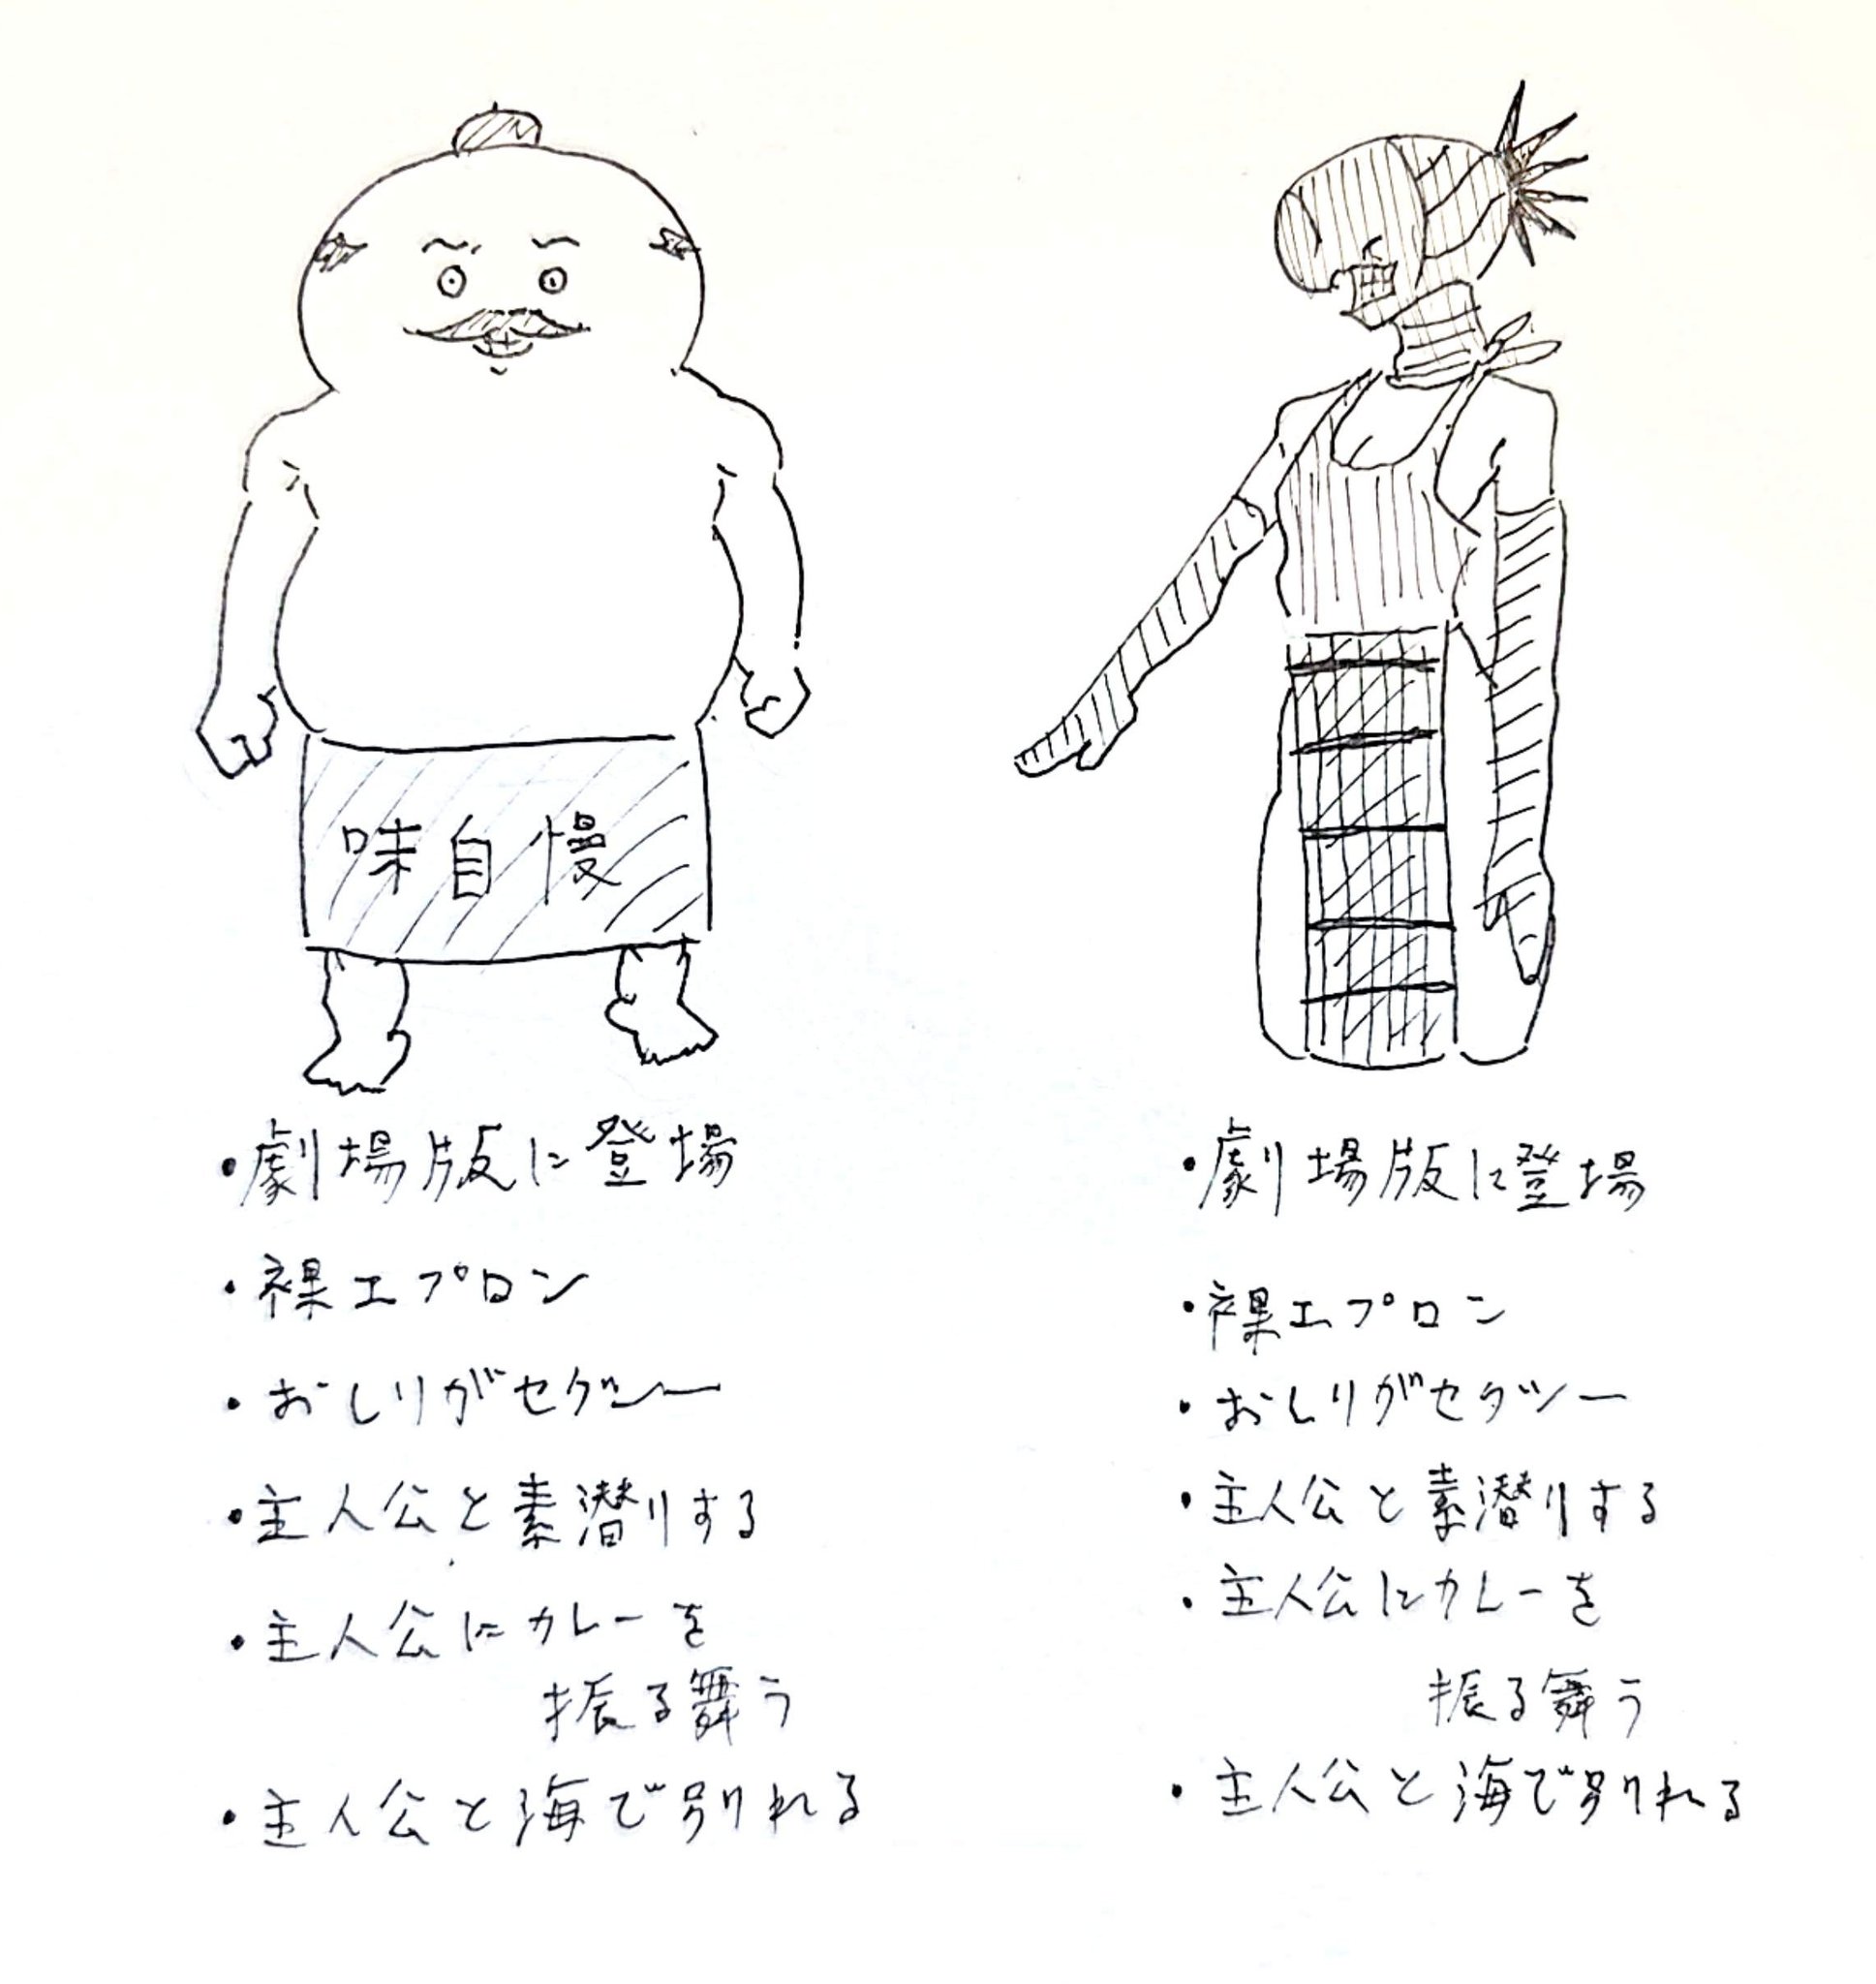 味自慢
・劇場版に登場
・裸エプロン
・おしりがセクシー
・主人公と素潜りする
・主人公にカレーを
振る舞う
・主人公と海で別れる
・劇場版に登場
・裸エプロン
・おしりがセクシー
・主人公と素潜りする
・主人公にカレーを
振る舞う
・主人公と海で別れる